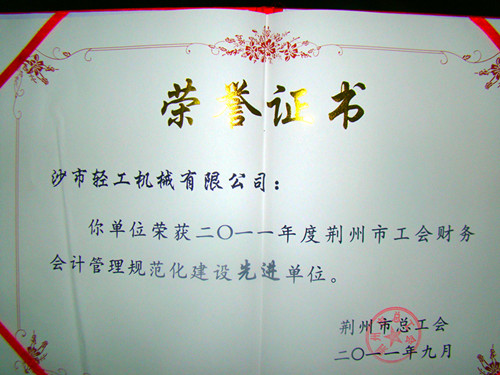 荣誉证书
沙市轻工机械有限公司：
你单位荣获二〇一一年度荆州市工会财务
会计管理规范化建设先进单位。
荆州市总工会
二〇一一年九月